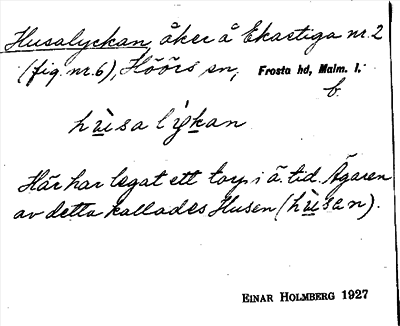 Husalyckan, åker å Ekastiga nr. 2
(fig. nr. 6), Höörs sn, Frosta hd, Malm. l.
b.
hùsa lỳkan
Här har legat ett torp i ä. tid. Ägaren
av detta kallades Husen (hùsən).
EINAR HOLMBERG 1927